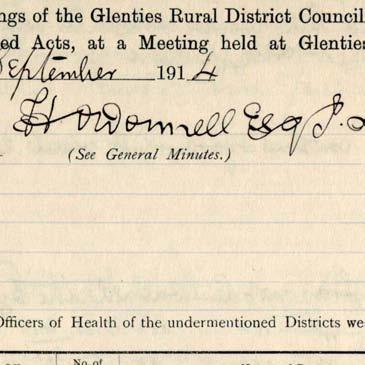 ngs of the Glenties Rural District Council
ed Acts, at a Meeting held at Glenties
September 1914
O'Donnell Esq J.
(See General Minutes.)
Officers of Health of the undermentioned Districts we
No. of